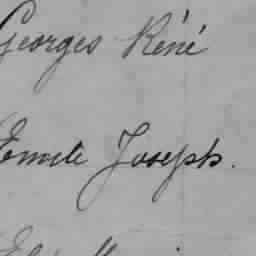 Georges Réné
Emile Joseph.